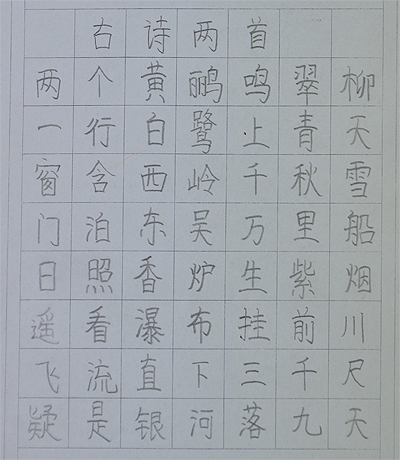 古诗两首
两个黄鹂鸣翠柳
一行白鹭上青天
窗含西岭千秋雪
门泊东吴万里船
日照香炉生紫烟
遥看瀑布挂前川
飞流直下三千尺
疑是银河落九天